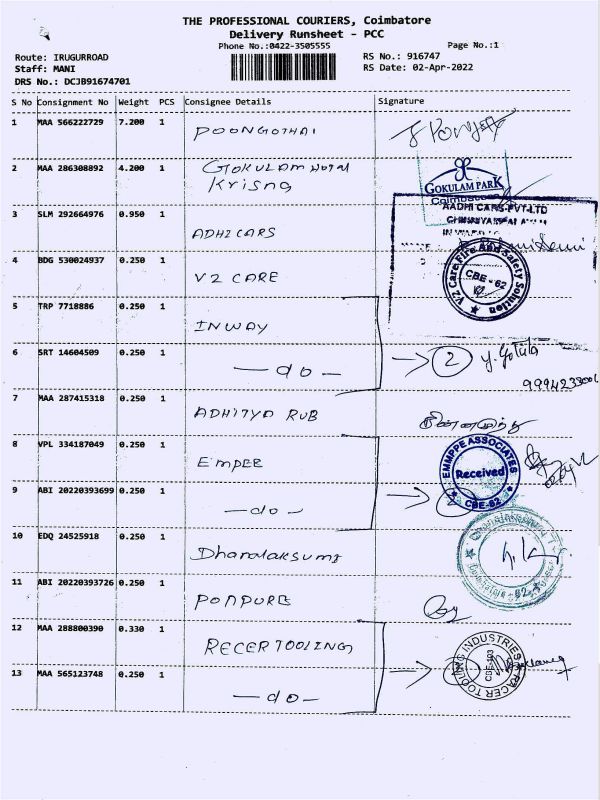 THE PROFESSIONAL COURIERS, Coimbatore
Delivery Runsheet - PCC
Phone No.:0422-3505555
Page No.:1
Route: IRUGURROAD
Staff: MANI
DRS No.: DCJB91674701
RS No.: 916747
RS Date: 02-Apr-2022
S No Consignment No Weight PCS Consignee Details Signature
1 MAA 566222729 7.200 1 POONGOTHAI
2 MAA 286308892 4.200 1 GOKULAM Hotal
Krisna
GOKULAM PARK
Coimbatore
3 SLM 292664976 0.950 1 ADHI CARS
AADHI CARS PVT-LTD
4 BDG 530024937 0.250 1 V2 CARE
V2 Care Fire And Safety Solution
CBE - 62
5 TRP 7718886 0.250 1 INWAY
6 SRT 14604509 0.250 1 — do — 2
7 MAA 287415318 0.250 1 ADHITYA RUB
8 VPL 334187049 0.250 1 EMPEE
EMMPPE ASSOCIATES
Received
CBE-62
9 ABI 20220393699 0.250 1 — do — 2
10 EDQ 24525918 0.250 1 Dhanalaksumi
11 ABI 20220393726 0.250 1 PONPURE
12 MAA 288800390 0.330 1 RECER TOOLING
RACER TOOLING INDUSTRIES
13 MAA 565123748 0.250 1 — do —